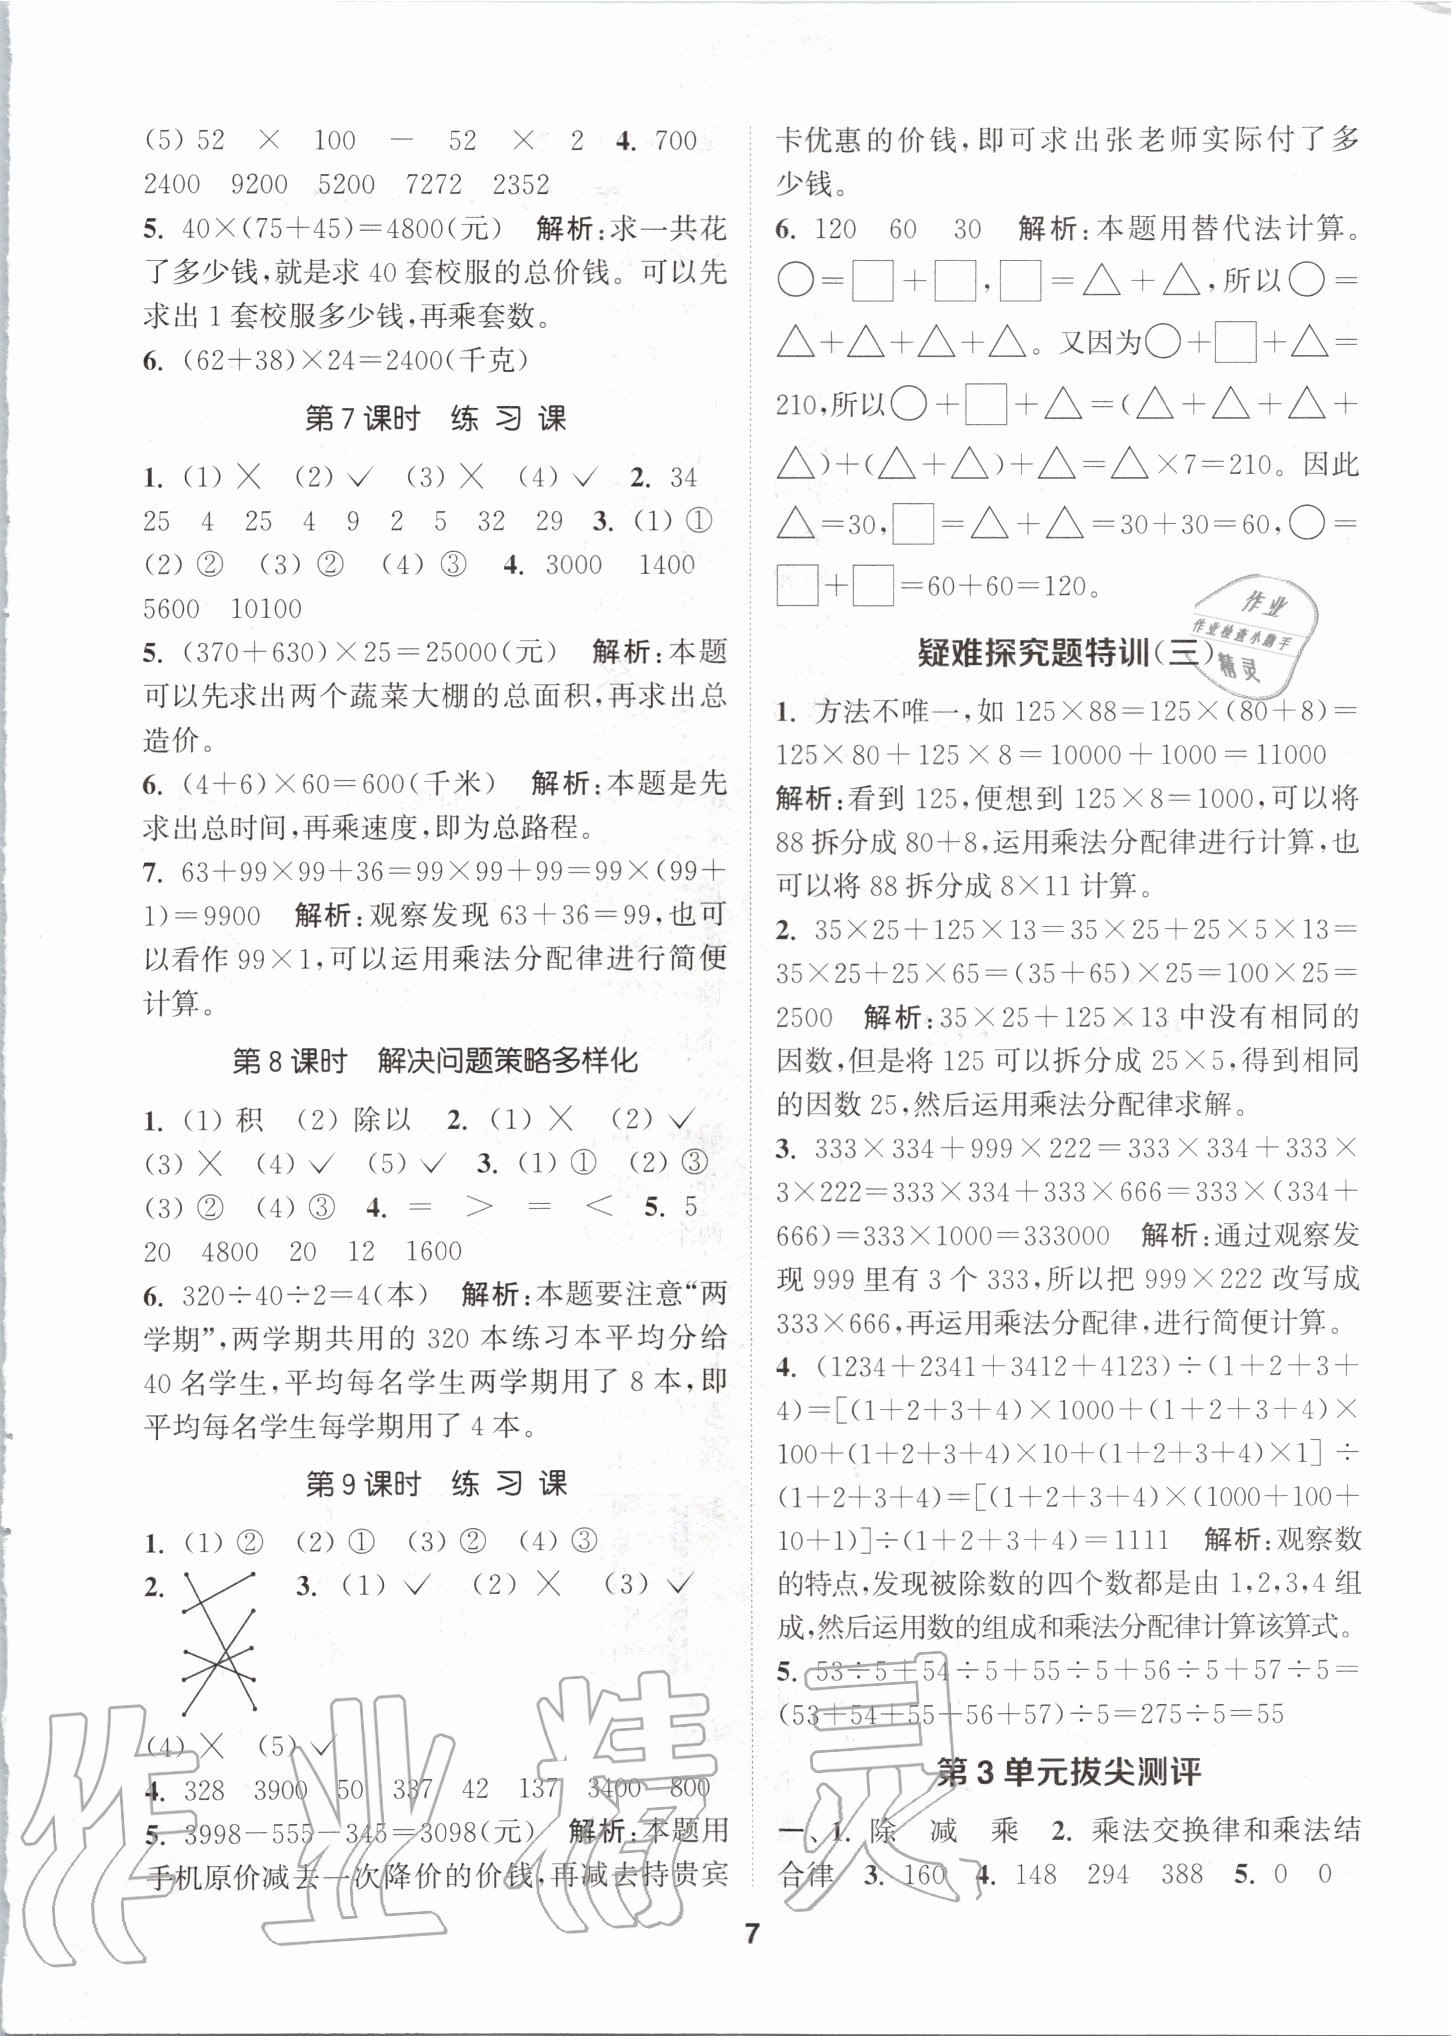 (5) 52 × 100 － 52 × 2 4. 700
2400 9200 5200 7272 2352
5. 40×(75+45)=4800(元) 解析:求一共花
了多少钱,就是求 40 套校服的总价钱。可以先
求出 1 套校服多少钱,再乘套数。
6. (62+38)×24=2400(千克)
第 7 课时 练 习 课
1. (1) ╳ (2) ✓ (3) ╳ (4) ✓ 2. 34
25 4 25 4 9 2 5 32 29 3. (1) ①
(2) ② (3) ② (4) ③ 4. 3000 1400
5600 10100
5. (370+630)×25=25000(元) 解析:本题
可以先求出两个蔬菜大棚的总面积,再求出总
造价。
6. (4+6)×60=600(千米) 解析:本题是先
求出总时间,再乘速度,即为总路程。
7. 63+99×99+36=99×99+99=99×(99+
1)=9900 解析:观察发现 63+36=99,也可
以看作 99×1,可以运用乘法分配律进行简便
计算。
第 8 课时 解决问题策略多样化
1. (1) 积 (2) 除以 2. (1) ╳ (2) ✓
(3) ╳ (4) ✓ (5) ✓ 3. (1) ① (2) ③
(3) ② (4) ③ 4. = > = < 5. 5
20 4800 20 12 1600
6. 320÷40÷2=4(本) 解析:本题要注意“两
学期”,两学期共用的 320 本练习本平均分给
40 名学生,平均每名学生两学期用了 8 本,即
平均每名学生每学期用了 4 本。
第 9 课时 练 习 课
1. (1) ② (2) ① (3) ② (4) ③
2. 3. (1) ✓ (2) ╳ (3) ✓
(4) ╳ (5) ✓
4. 328 3900 50 337 42 137 3400 800
5. 3998－555－345=3098(元) 解析:本题用
手机原价减去一次降价的价钱,再减去持贵宾
卡优惠的价钱,即可求出张老师实际付了多
少钱。
6. 120 60 30 解析:本题用替代法计算。
○=□+□,□=△+△,所以○=
△+△+△+△。又因为○+□+△=
210,所以○+□+△=(△+△+△+
△)+(△+△)+△=△×7=210。因此
△=30,□=△+△=30+30=60,○=
□+□=60+60=120。
疑难探究题特训(三)
1. 方法不唯一,如 125×88=125×(80+8)=
125×80+125×8=10000+1000=11000
解析:看到 125,便想到 125×8=1000,可以将
88 拆分成 80+8,运用乘法分配律进行计算,也
可以将 88 拆分成 8×11 计算。
2. 35×25+125×13=35×25+25×5×13=
35×25+25×65=(35+65)×25=100×25=
2500 解析:35×25+125×13 中没有相同的
因数,但是将 125 可以拆分成 25×5,得到相同
的因数 25,然后运用乘法分配律求解。
3. 333×334+999×222=333×334+333×
3×222=333×334+333×666=333×(334+
666)=333×1000=333000 解析:通过观察发
现 999 里有 3 个 333,所以把 999×222 改写成
333×666,再运用乘法分配律,进行简便计算。
4. (1234+2341+3412+4123)÷(1+2+3+
4)=[(1+2+3+4)×1000+(1+2+3+4)×
100+(1+2+3+4)×10+(1+2+3+4)×1]÷
(1+2+3+4)=[(1+2+3+4)×(1000+100+
10+1)]÷(1+2+3+4)=1111 解析:观察数
的特点,发现被除数的四个数都是由 1,2,3,4 组
成,然后运用数的组成和乘法分配律计算该算式。
5. 53÷5+54÷5+55÷5+56÷5+57÷5=
(53+54+55+56+57)÷5=275÷5=55
第 3 单元拔尖测评
一、1. 除 减 乘 2. 乘法交换律和乘法结
合律 3. 160 4. 148 294 388 5. 0 0
7
作业
作业检查小助手
精灵
作业精灵